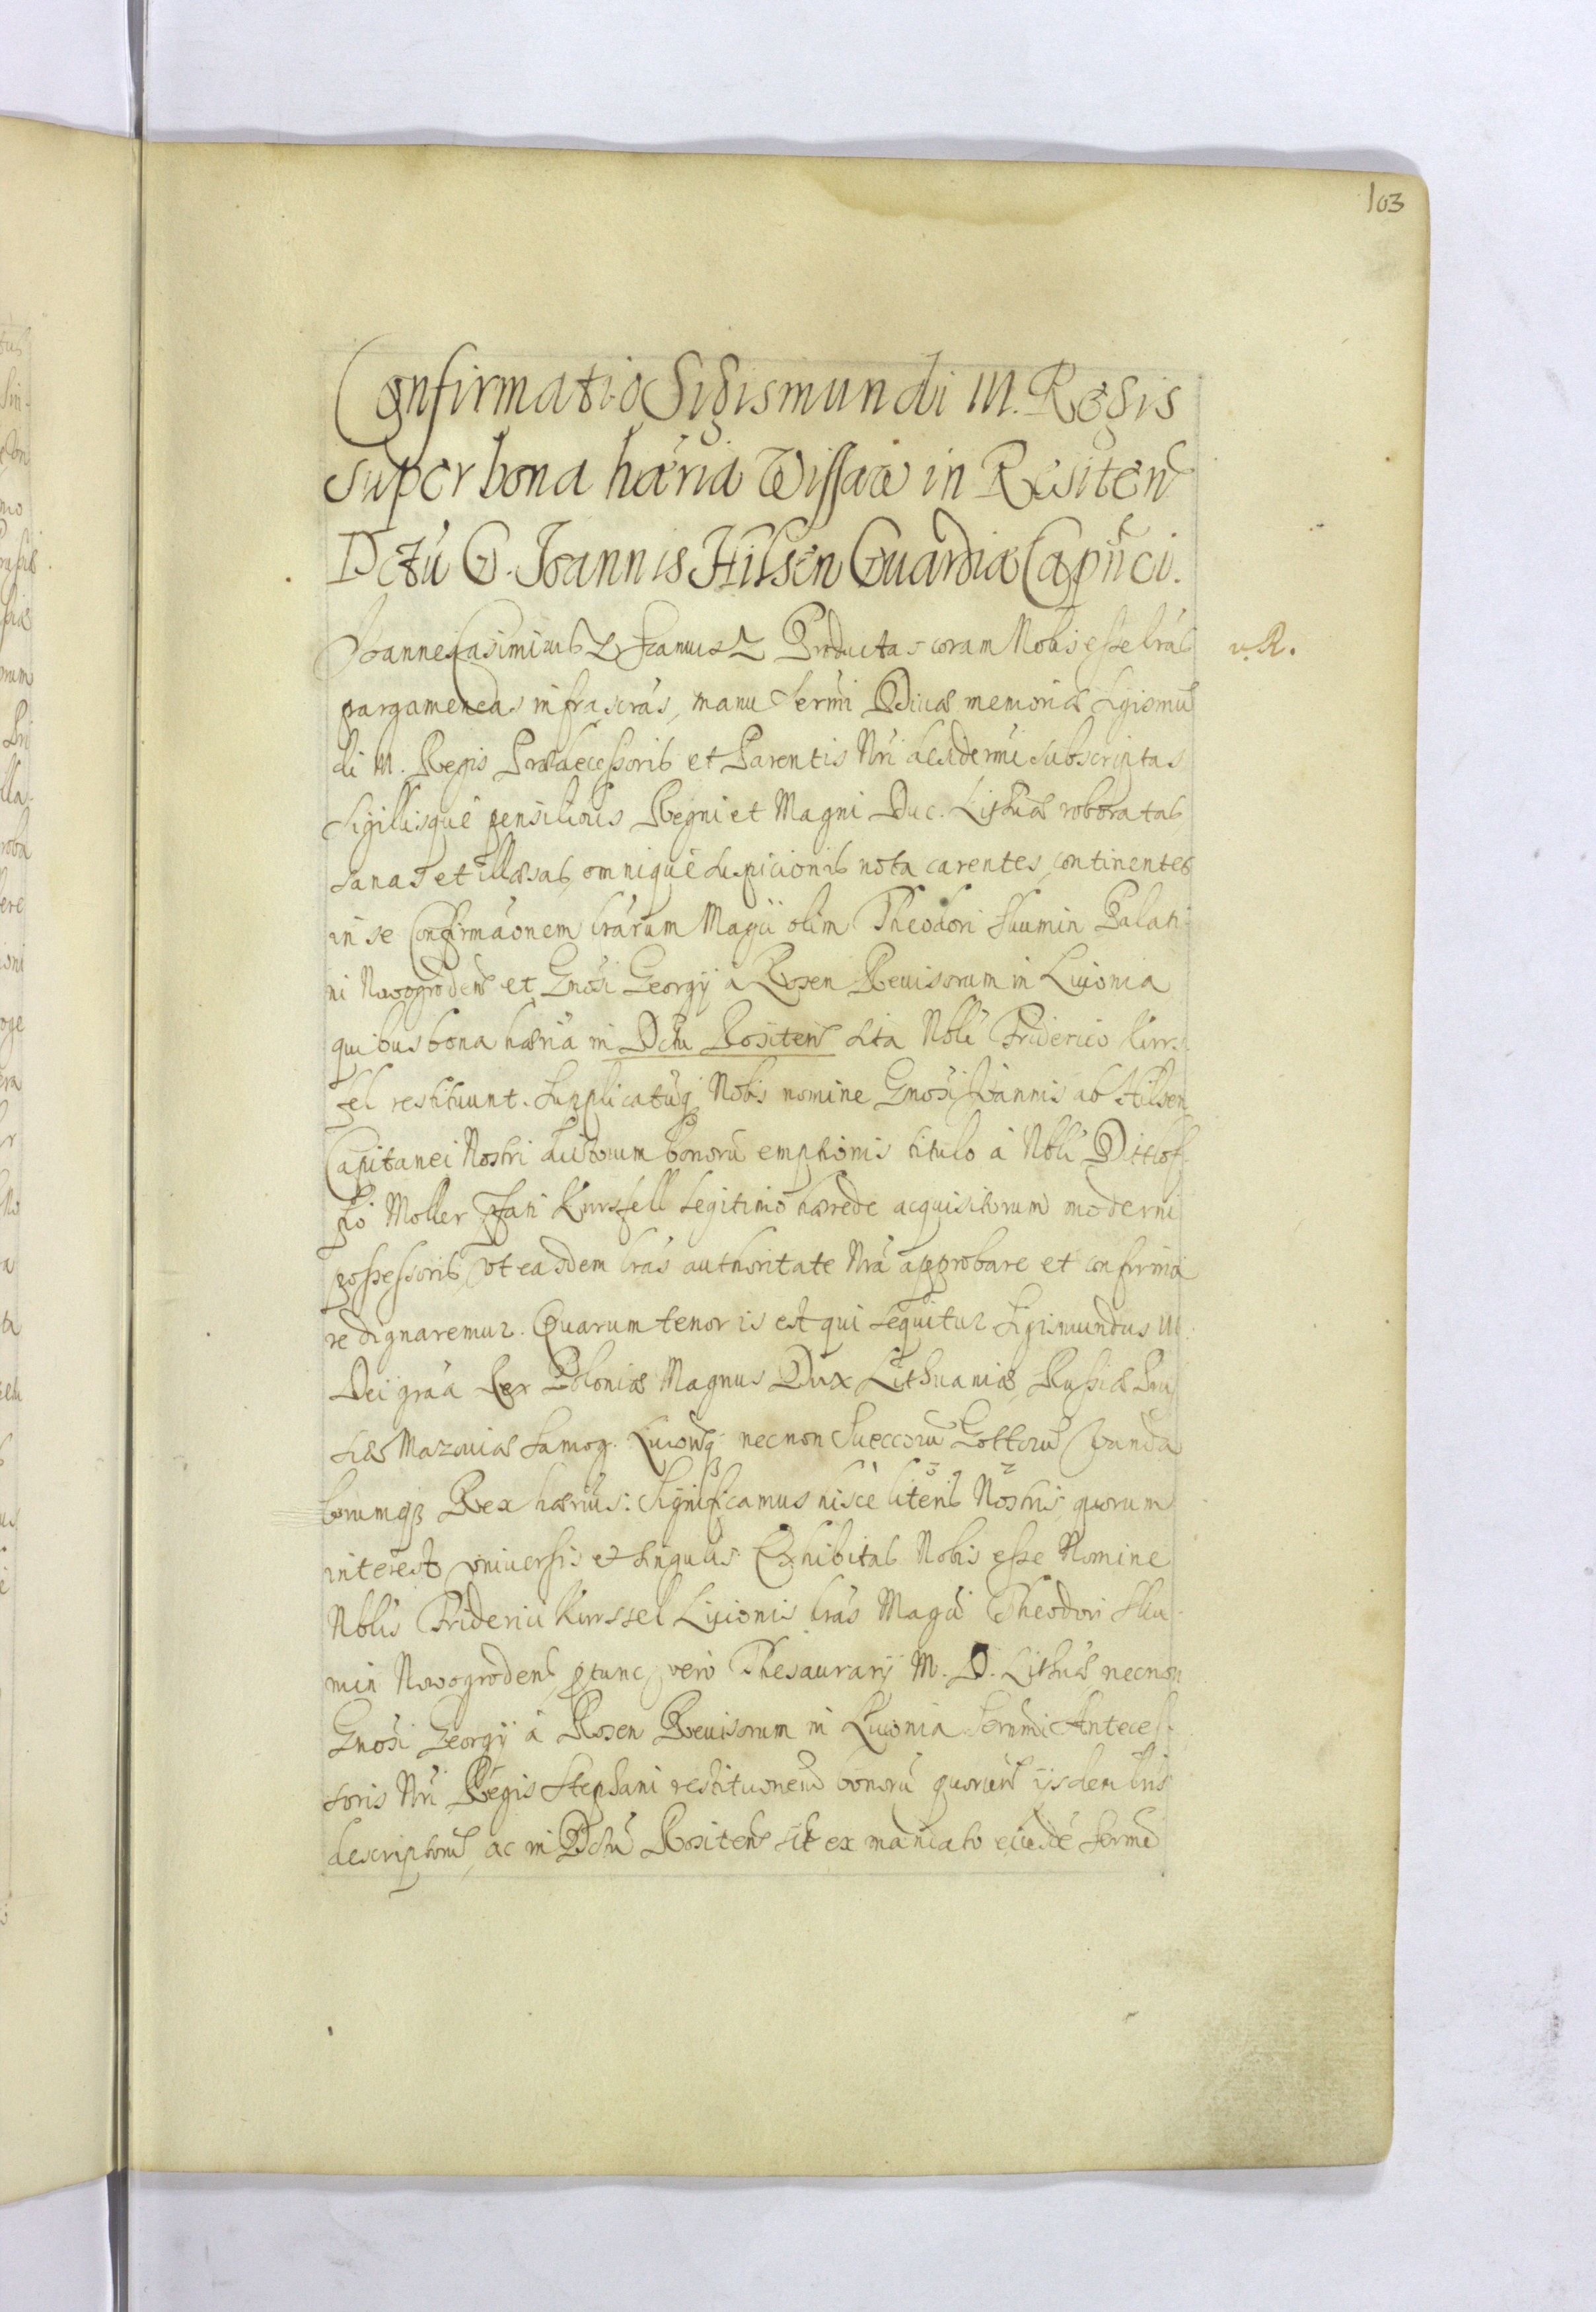 103
Confirmatio Sigismundi III. Regis
super bona hæria Wissaw in Resitens
Dctu G. Joannis Hilsen Guardiæ Capnci.
Joannes Casimirus etc. Producta coram Nobis esse lras
pargameneas infrascras, manu Sermi Divæ memoriæ Sigismu
di III. Regis Prædecessoris et Parentis Nri desidermi subscriptas
Sigillisque pensilibus Regni et Magni Duc. Lithuæ roboratas,
sanas et illæsas, omnique suspicionis nota carentes, continentes
in se Confirmaonem lrarum Magci olim Theodori Skumin Palati-
ni Nowogrodens et Gnosi Georgij a Rosen Reuisorum in Liuonia
quibus bona hæria in Dctu Rositens sita Nobli Friderico Kurs-
sel restituunt. Supplicatumq Nobis nomine Gnosi Joannis ab Hilsen
Capitanei Nostri dictorum bonoru emptionis titulo a Nbli Dittlof-
fo Moller Fati Kurssell legitimo hærede acquisitorum moderni
possessoris, vt easdem lras authoritate Nra approbare et confirma
re dignaremur. Quarum tenor is est qui sequitur Sigismundus III.
Dei graa Rex Poloniæ Magnus Dux Lithuaniæ, Russiæ Pru
siæ Mazouiæ Samog. Liuonq necnon Sueccoru Gottoru Vanda
lorumq Rex hærius: Significamus hisce literis Nostris, quorum
interest, vniuersis et singulis Exhibitas Nobis esse Nomine
Nblis Friderici Kurssel Liuonis lras Magci Theodori Sku-
min Nowogrodens, ptunc vero Thesaurarij M. D. Lithuæ necnon
Gnosi Georgij a Rosen Reuisorum in Liuonia Sermi Anteces-
soris Nri Regis Stephani restituonem bonoru quorum ijsdem lris
descriptoru, ac in Dctu Rositens sit ex mandato eiusde Serme
v. R.